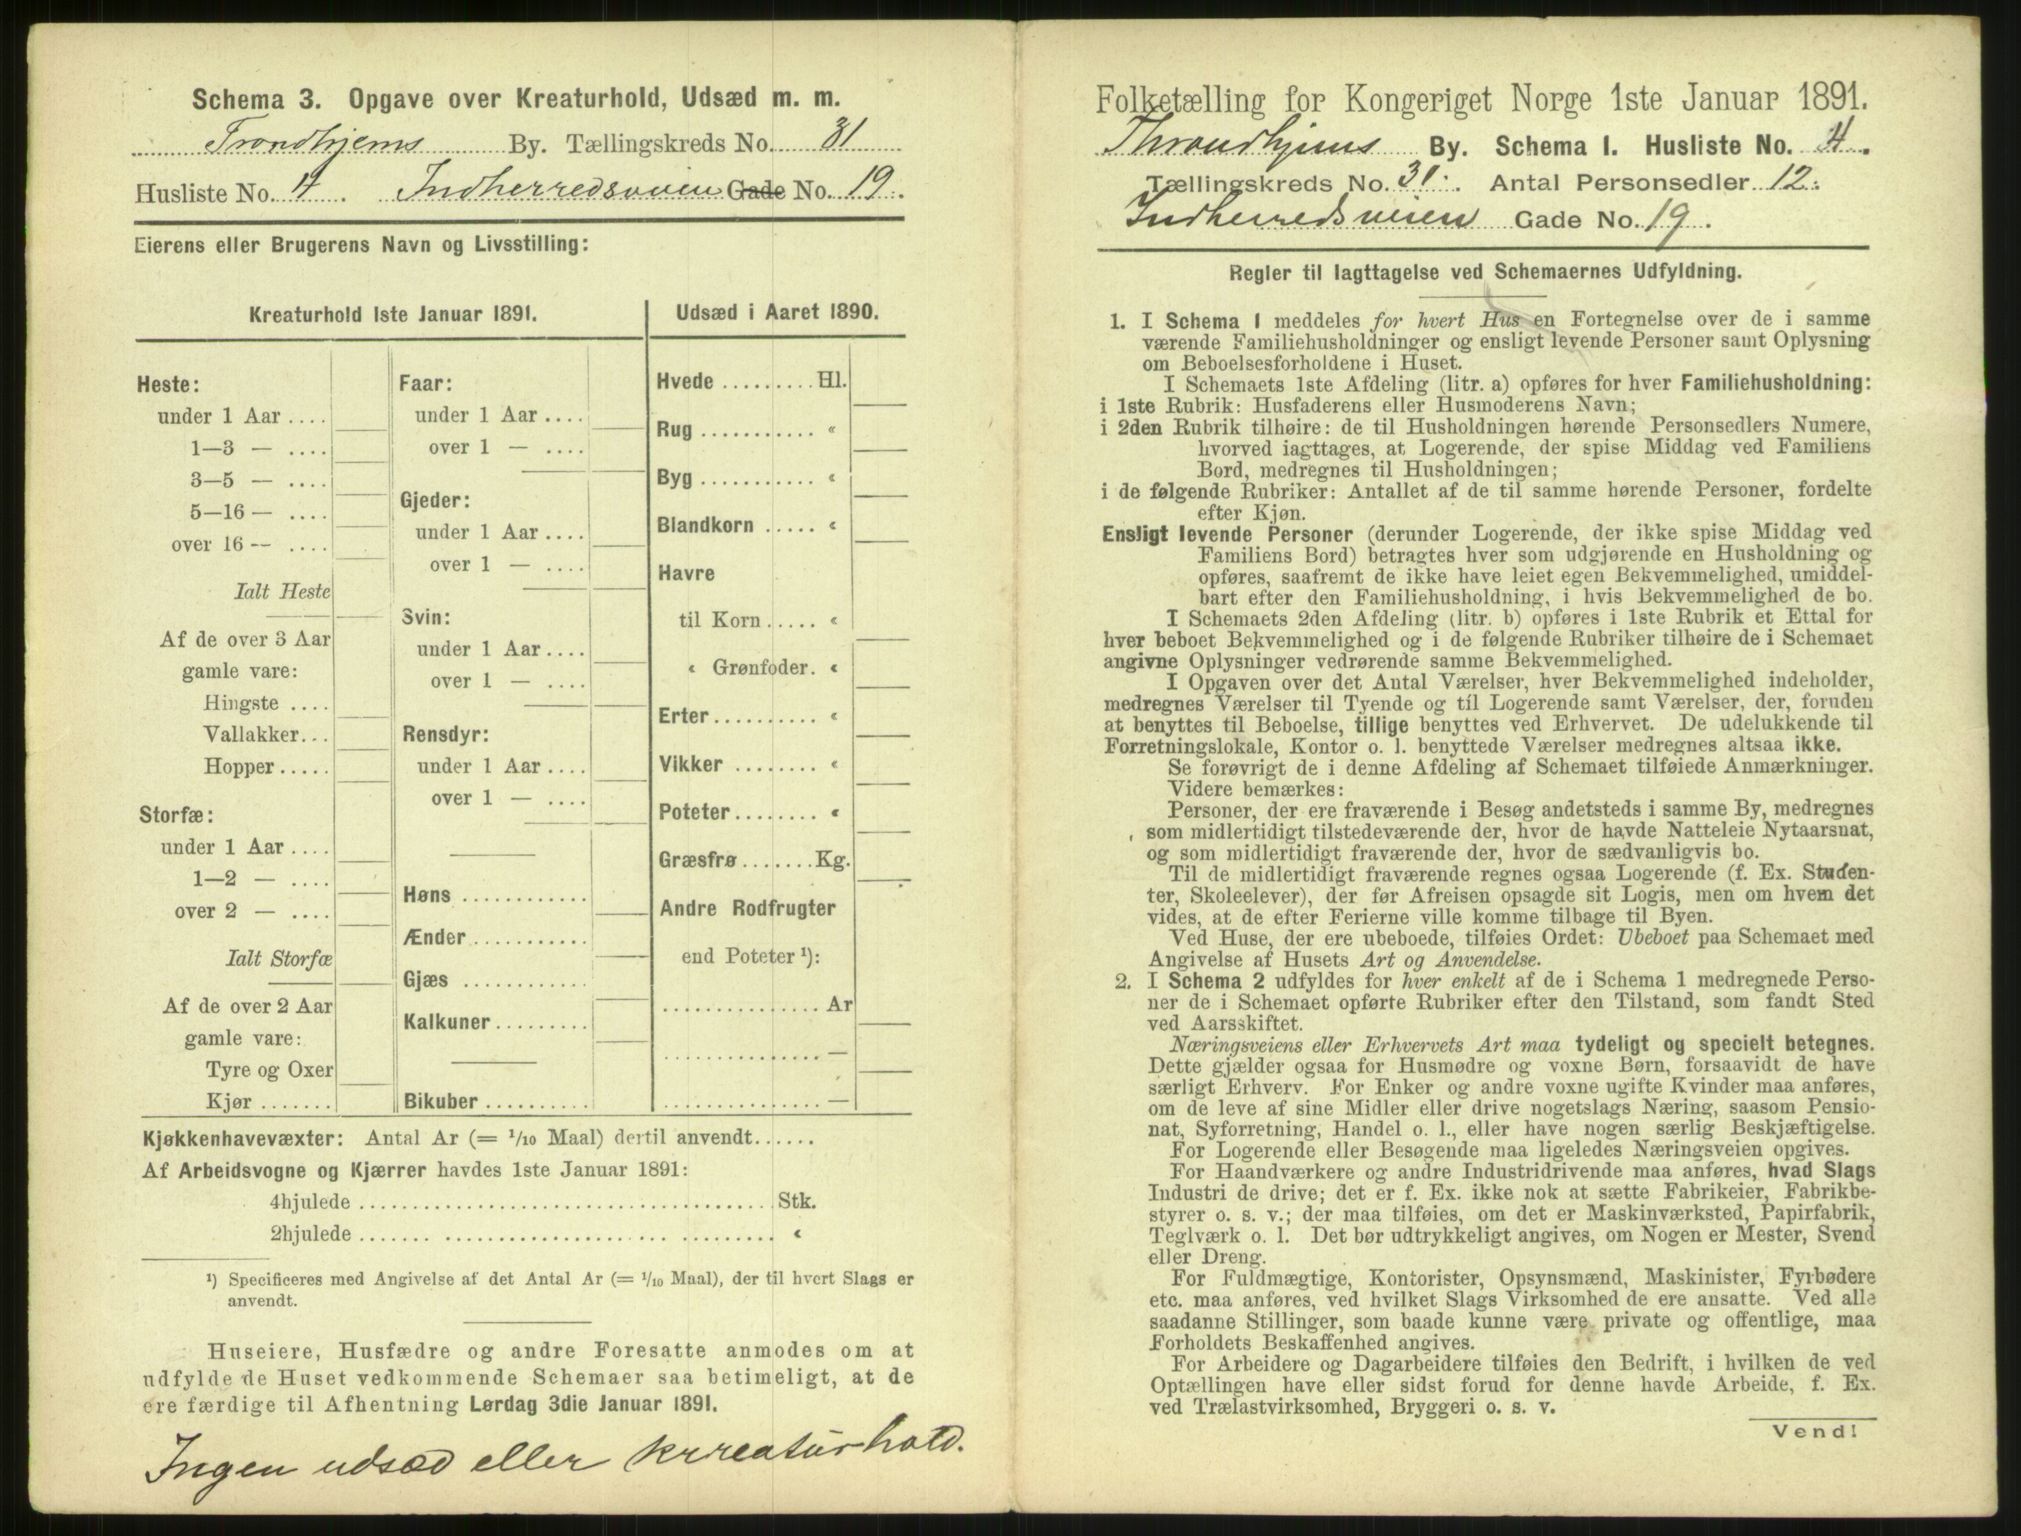 Schema 3. Opgave over Kreaturhold, Udsæd m. m.
Trondhjems By. Tællingskreds No. 31
Husliste No. 4 Indherredsveien Gade No. 19.
Eierens eller Brugerens Navn og Livsstilling:
Kreaturhold 1ste Januar 1891.
Heste:
under 1 Aar ....
1—3 — ....
3—5 — ....
5—16 — ....
over 16 — ....
Ialt Heste
Af de over 3 Aar
gamle vare:
Hingste ....
Vallakker...
Hopper.....
Storfæ:
under 1 Aar ....
1—2 — ....
over 2 — ....
Ialt Storfæ
Af de over 2 Aar
gamle vare:
Tyre og Oxer
Kjør .......
Faar:
under 1 Aar ....
over 1 — ....
Gjeder:
under 1 Aar ....
over 1 — ....
Svin:
under 1 Aar ....
over 1 — ....
Rensdyr:
under 1 Aar ....
over 1 — ....
Høns ............
Ænder...........
Gjæs ............
Kalkuner.........
Bikuber..........
Udsæd i Aaret 1890.
Hvede .........Hl.
Rug ........... «
Byg ........... «
Blandkorn ..... «
Havre
til Korn ..... «
« Grønfoder. «
Erter.......... «
Vikker ........ «
Poteter........ «
Græsfrø.......Kg.
Andre Rodfrugter
end Poteter ¹):
............... Ar
............... —
............... —
Kjøkkenhavevæxter: Antal Ar (= 1/10 Maal) dertil anvendt......
Af Arbeidsvogne og Kjærrer havdes 1ste Januar 1891:
4hjulede ..................................... Stk.
2hjulede ..................................... «
¹) Specificeres med Angivelse af det Antal Ar (= 1/10 Maal), der til hvert Slags er
anvendt.
Huseiere, Husfædre og andre Foresatte anmodes om at
udfylde de Huset vedkommende Schemaer saa betimeligt, at de
ere færdige til Afhentning Lørdag 3die Januar 1891.
Ingen udsæd eller krreaturhold.
Folketælling for Kongeriget Norge 1ste Januar 1891.
Throndhjems By. Schema I. Husliste No. 4.
Tællingskreds No. 31. Antal Personsedler 12.
Indherredsveien Gade No. 19.
Regler til Iagttagelse ved Schemaernes Udfyldning.
1. I Schema 1 meddeles for hvert Hus en Fortegnelse over de i samme
værende Familiehusholdninger og ensligt levende Personer samt Oplysning
om Beboelsesforholdene i Huset.
I Schemaets 1ste Afdeling (litr. a) opføres for hver Familiehusholdning:
i 1ste Rubrik: Husfaderens eller Husmoderens Navn;
i 2den Rubrik tilhøire: de til Husholdningen hørende Personsedlers Numere,
hvorved iagttages, at Logerende, der spise Middag ved Familiens
Bord, medregnes til Husholdningen;
i de følgende Rubriker: Antallet af de til samme hørende Personer, fordelte
efter Kjøn.
Ensligt levende Personer (derunder Logerende, der ikke spise Middag ved
Familiens Bord) betragtes hver som udgjørende en Husholdning og
opføres, saafremt de ikke have leiet egen Bekvemmelighed, umiddel-
bart efter den Familiehusholdning, i hvis Bekvemmelighed de bo.
I Schemaets 2den Afdeling (litr. b) opføres i 1ste Rubrik et Ettal for
hver beboet Bekvemmelighed og i de følgende Rubriker tilhøire de i Schemaet
angivne Oplysninger vedrørende samme Bekvemmelighed.
I Opgaven over det Antal Værelser, hver Bekvemmelighed indeholder,
medregnes Værelser til Tyende og til Logerende samt Værelser, der, foruden
at benyttes til Beboelse, tillige benyttes ved Erhvervet. De udelukkende til
Forretningslokale, Kontor o. l. benyttede Værelser medregnes altsaa ikke.
Se forøvrigt de i denne Afdeling af Schemaet tilføiede Anmærkninger.
Videre bemærkes:
Personer, der ere fraværende i Besøg andetsteds i samme By, medregnes
som midlertidigt tilstedeværende der, hvor de havde Natteleie Nytaarsnat,
og som midlertidigt fraværende der, hvor de sædvanligvis bo.
Til de midlertidigt fraværende regnes ogsaa Logerende (f. Ex. Studen-
ter, Skoleelever), der før Afreisen opsagde sit Logis, men om hvem det
vides, at de efter Ferierne ville komme tilbage til Byen.
Ved Huse, der ere ubeboede, tilføies Ordet: Ubeboet paa Schemaet med
Angivelse af Husets Art og Anvendelse.
2. I Schema 2 udfyldes for hver enkelt af de i Schema 1 medregnede Perso-
ner de i Schemaet opførte Rubriker efter den Tilstand, som fandt Sted
ved Aarsskiftet.
Næringsveiens eller Erhvervets Art maa tydeligt og specielt betegnes.
Dette gjælder ogsaa for Husmødre og voxne Børn, forsaavidt de have
særligt Erhverv. For Enker og andre voxne ugifte Kvinder maa anføres,
om de leve af sine Midler eller drive nogetslags Næring, saasom Pensio-
nat, Syforretning, Handel o. l., eller have nogen særlig Beskjæftigelse.
For Logerende eller Besøgende maa ligeledes Næringsveien opgives.
For Haandværkere og andre Industridrivende maa anføres, hvad Slags
Industri de drive; det er f. Ex. ikke nok at sætte Fabrikeier, Fabrikbe-
styrer o. s. v.; der maa tilføies, om det er Maskinværksted, Papirfabrik,
Teglværk o. l. Det bør udtrykkeligt angives, om Nogen er Mester, Svend
eller Dreng.
For Fuldmægtige, Kontorister, Opsynsmænd, Maskinister, Fyrbødere
etc. maa anføres, ved hvilket Slags Virksomhed de ere ansatte. Ved alle
saadanne Stillinger, som baade kunne være private og offentlige, maa
Forholdets Beskaffenhed angives.
For Arbeidere og Dagarbeidere tilføies den Bedrift, i hvilken de ved
Optællingen have eller sidst forud for denne havde Arbeide, f. Ex.
ved Trælastvirksomhed, Bryggeri o. s. v.
Vend!